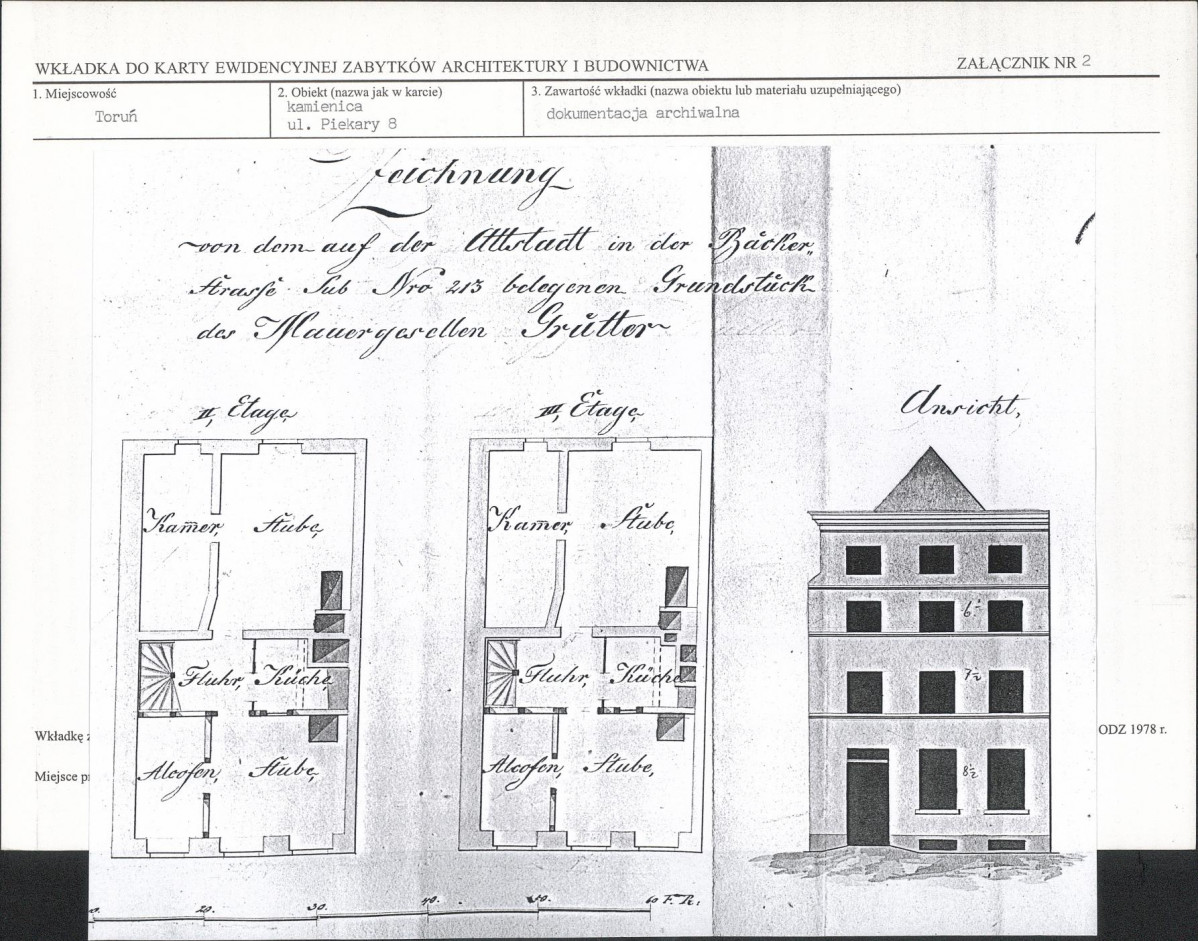 WKŁADKA DO KARTY EWIDENCYJNEJ ZABYTKÓW ARCHITEKTURY I BUDOWNICTWA
ZAŁĄCZNIK NR 2
1. Miejscowość
Toruń
2. Obiekt (nazwa jak w karcie)
kamienica
ul. Piekary 8
3. Zawartość wkładki (nazwa obiektu lub materiału uzupełniającego)
dokumentacja archiwalna
Zeichnung
von dem auf der Altstadt in der Bäcker„
strasse Sub Nro 213 belegenen Grundstück
des Mauergesellen Grütter
II, Etage,
III, Etage,
Ansicht,
Kam̅er, Stube,
Kam̅er, Stube,
6'
Fluhr, Küche,
Fluhr, Küche
7½
Wkładkę
ODZ 1978 r.
Miejsce
Alcofen, Stube,
Alcofen, Stube,
8½
20. 30. 40. 50. 60 F. R: